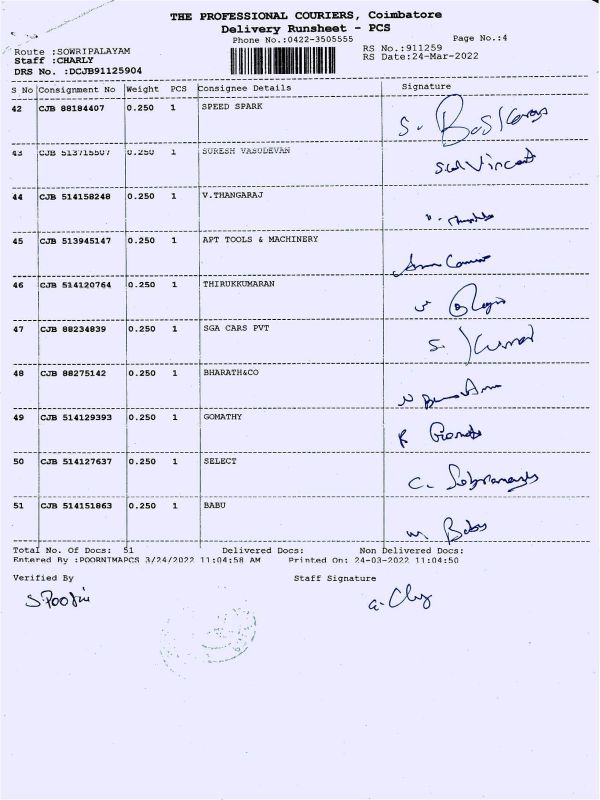 THE PROFESSIONAL COURIERS, Coimbatore
Delivery Runsheet - PCS
Phone No.:0422-3505555 Page No.:4
Route :SOWRIPALAYAM RS No.:911259
Staff :CHARLY RS Date:24-Mar-2022
DRS No. :DCJB91125904
S No Consignment No Weight PCS Consignee Details Signature
42 CJB 88184407 0.250 1 SPEED SPARK
43 CJB 513715507 0.250 1 SURESH VASUDEVAN
44 CJB 514158248 0.250 1 V.THANGARAJ
45 CJB 513945147 0.250 1 APT TOOLS & MACHINERY
46 CJB 514120764 0.250 1 THIRUKKUMARAN
47 CJB 88234839 0.250 1 SGA CARS PVT
S. Kumar
48 CJB 88275142 0.250 1 BHARATH&CO
49 CJB 514129393 0.250 1 GOMATHY
50 CJB 514127637 0.250 1 SELECT
51 CJB 514151863 0.250 1 BABU
M. Babu
Total No. Of Docs: 51 Delivered Docs: Non Delivered Docs:
Entered By :POORNIMAPCS 3/24/2022 11:04:58 AM Printed On: 24-03-2022 11:04:50
Verified By Staff Signature